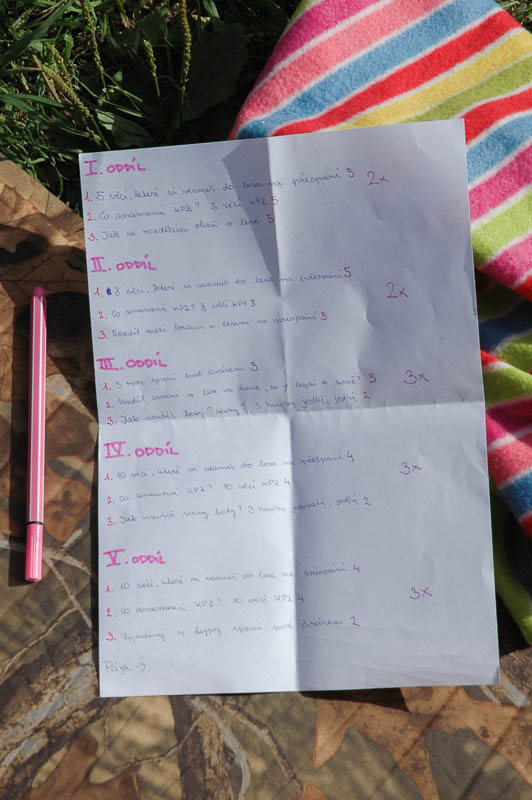 I. ODDÍL
1. 5 věcí, které si vezmeš do lesa na přespání 5 2x
2. Co znamená KPZ? 3 věci KPZ 5
3. Jak se rozdělává oheň v lese 5
II. ODDÍL
1. 8 věcí, které si vezmeš do lesa na přespání 5
2. Co znamená KPZ? 8 věcí KPZ 5 2x
3. Rozdíl mezi loukou a lesem na přespání 5
III. ODDÍL
1. 3 typy spaní pod širákem 3
2. Rozdíl spaní v lese na louce, co je lepší a proč? 5 3x
3. Jak usušíš boty? 3 houby jedlý, jedlý 2
IV. ODDÍL
1. 10 věcí, které si vezmeš do lesa na přespání 4 3x
2. Co znamená KPZ? 10 věcí KPZ 4
3. Jak usušíš boty? 3 houby jedovatý, jedlý 2
V. ODDÍL
1. 10 věcí, které si vezmeš do lesa na přespání 4
2. Co znamená KPZ? 10 věcí KPZ 4 3x
3. Vyjmenuj 4 typy spaní pod širákem 2
Pája →